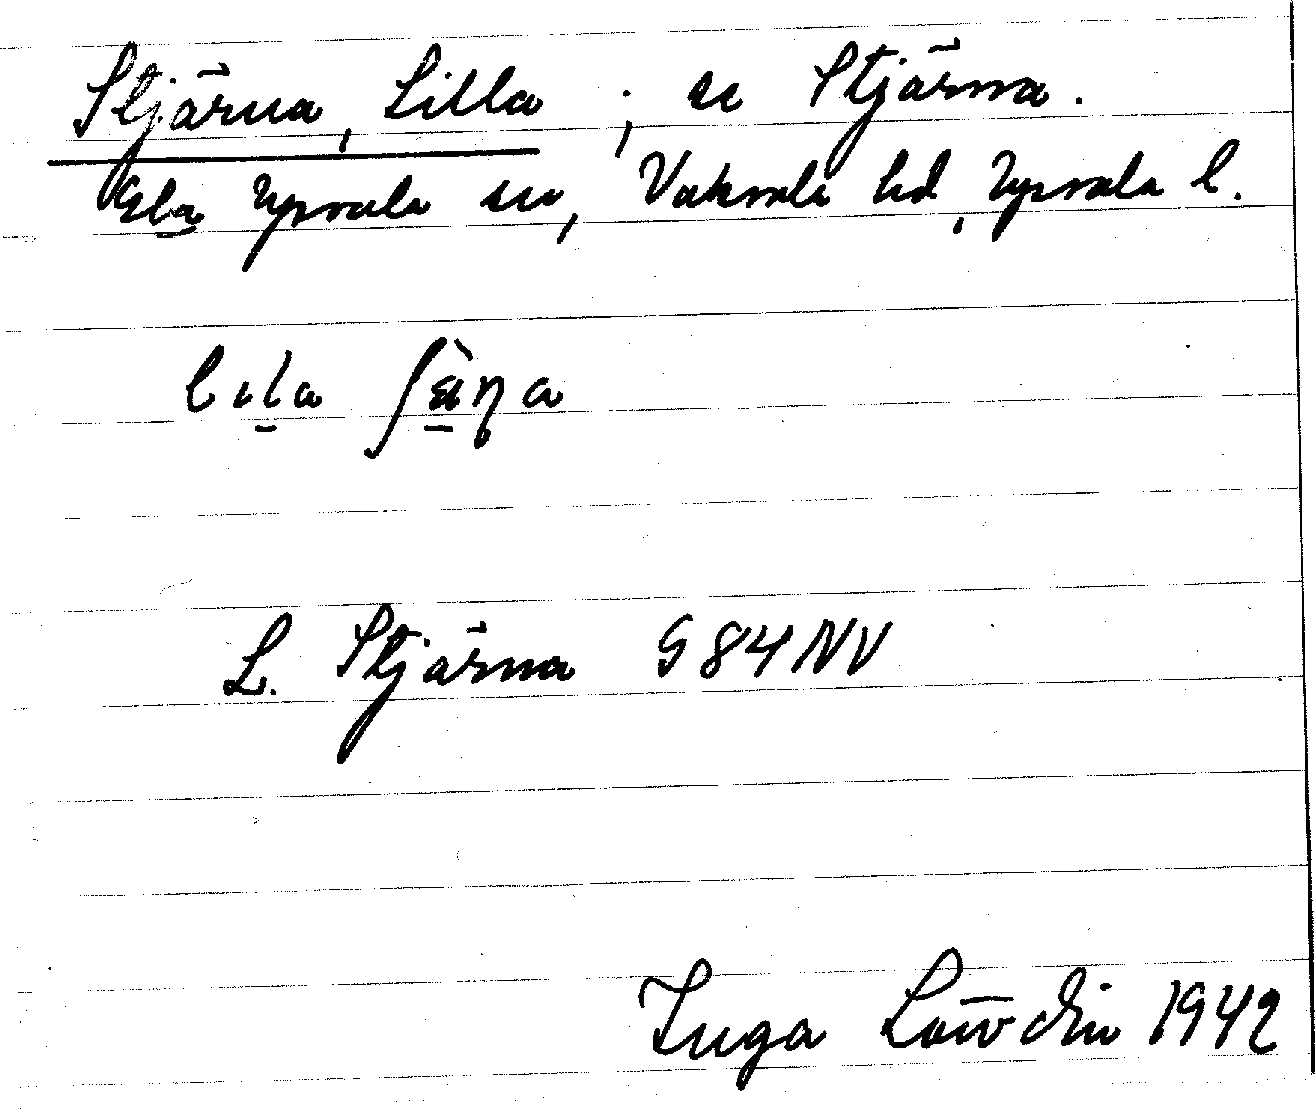 Stjärna, Lilla ; se Stjärna.
Gla Upsala sn, Vaksala hd, Upsala l.
L. Stjärna 984NV
Inga Löwdin 1942